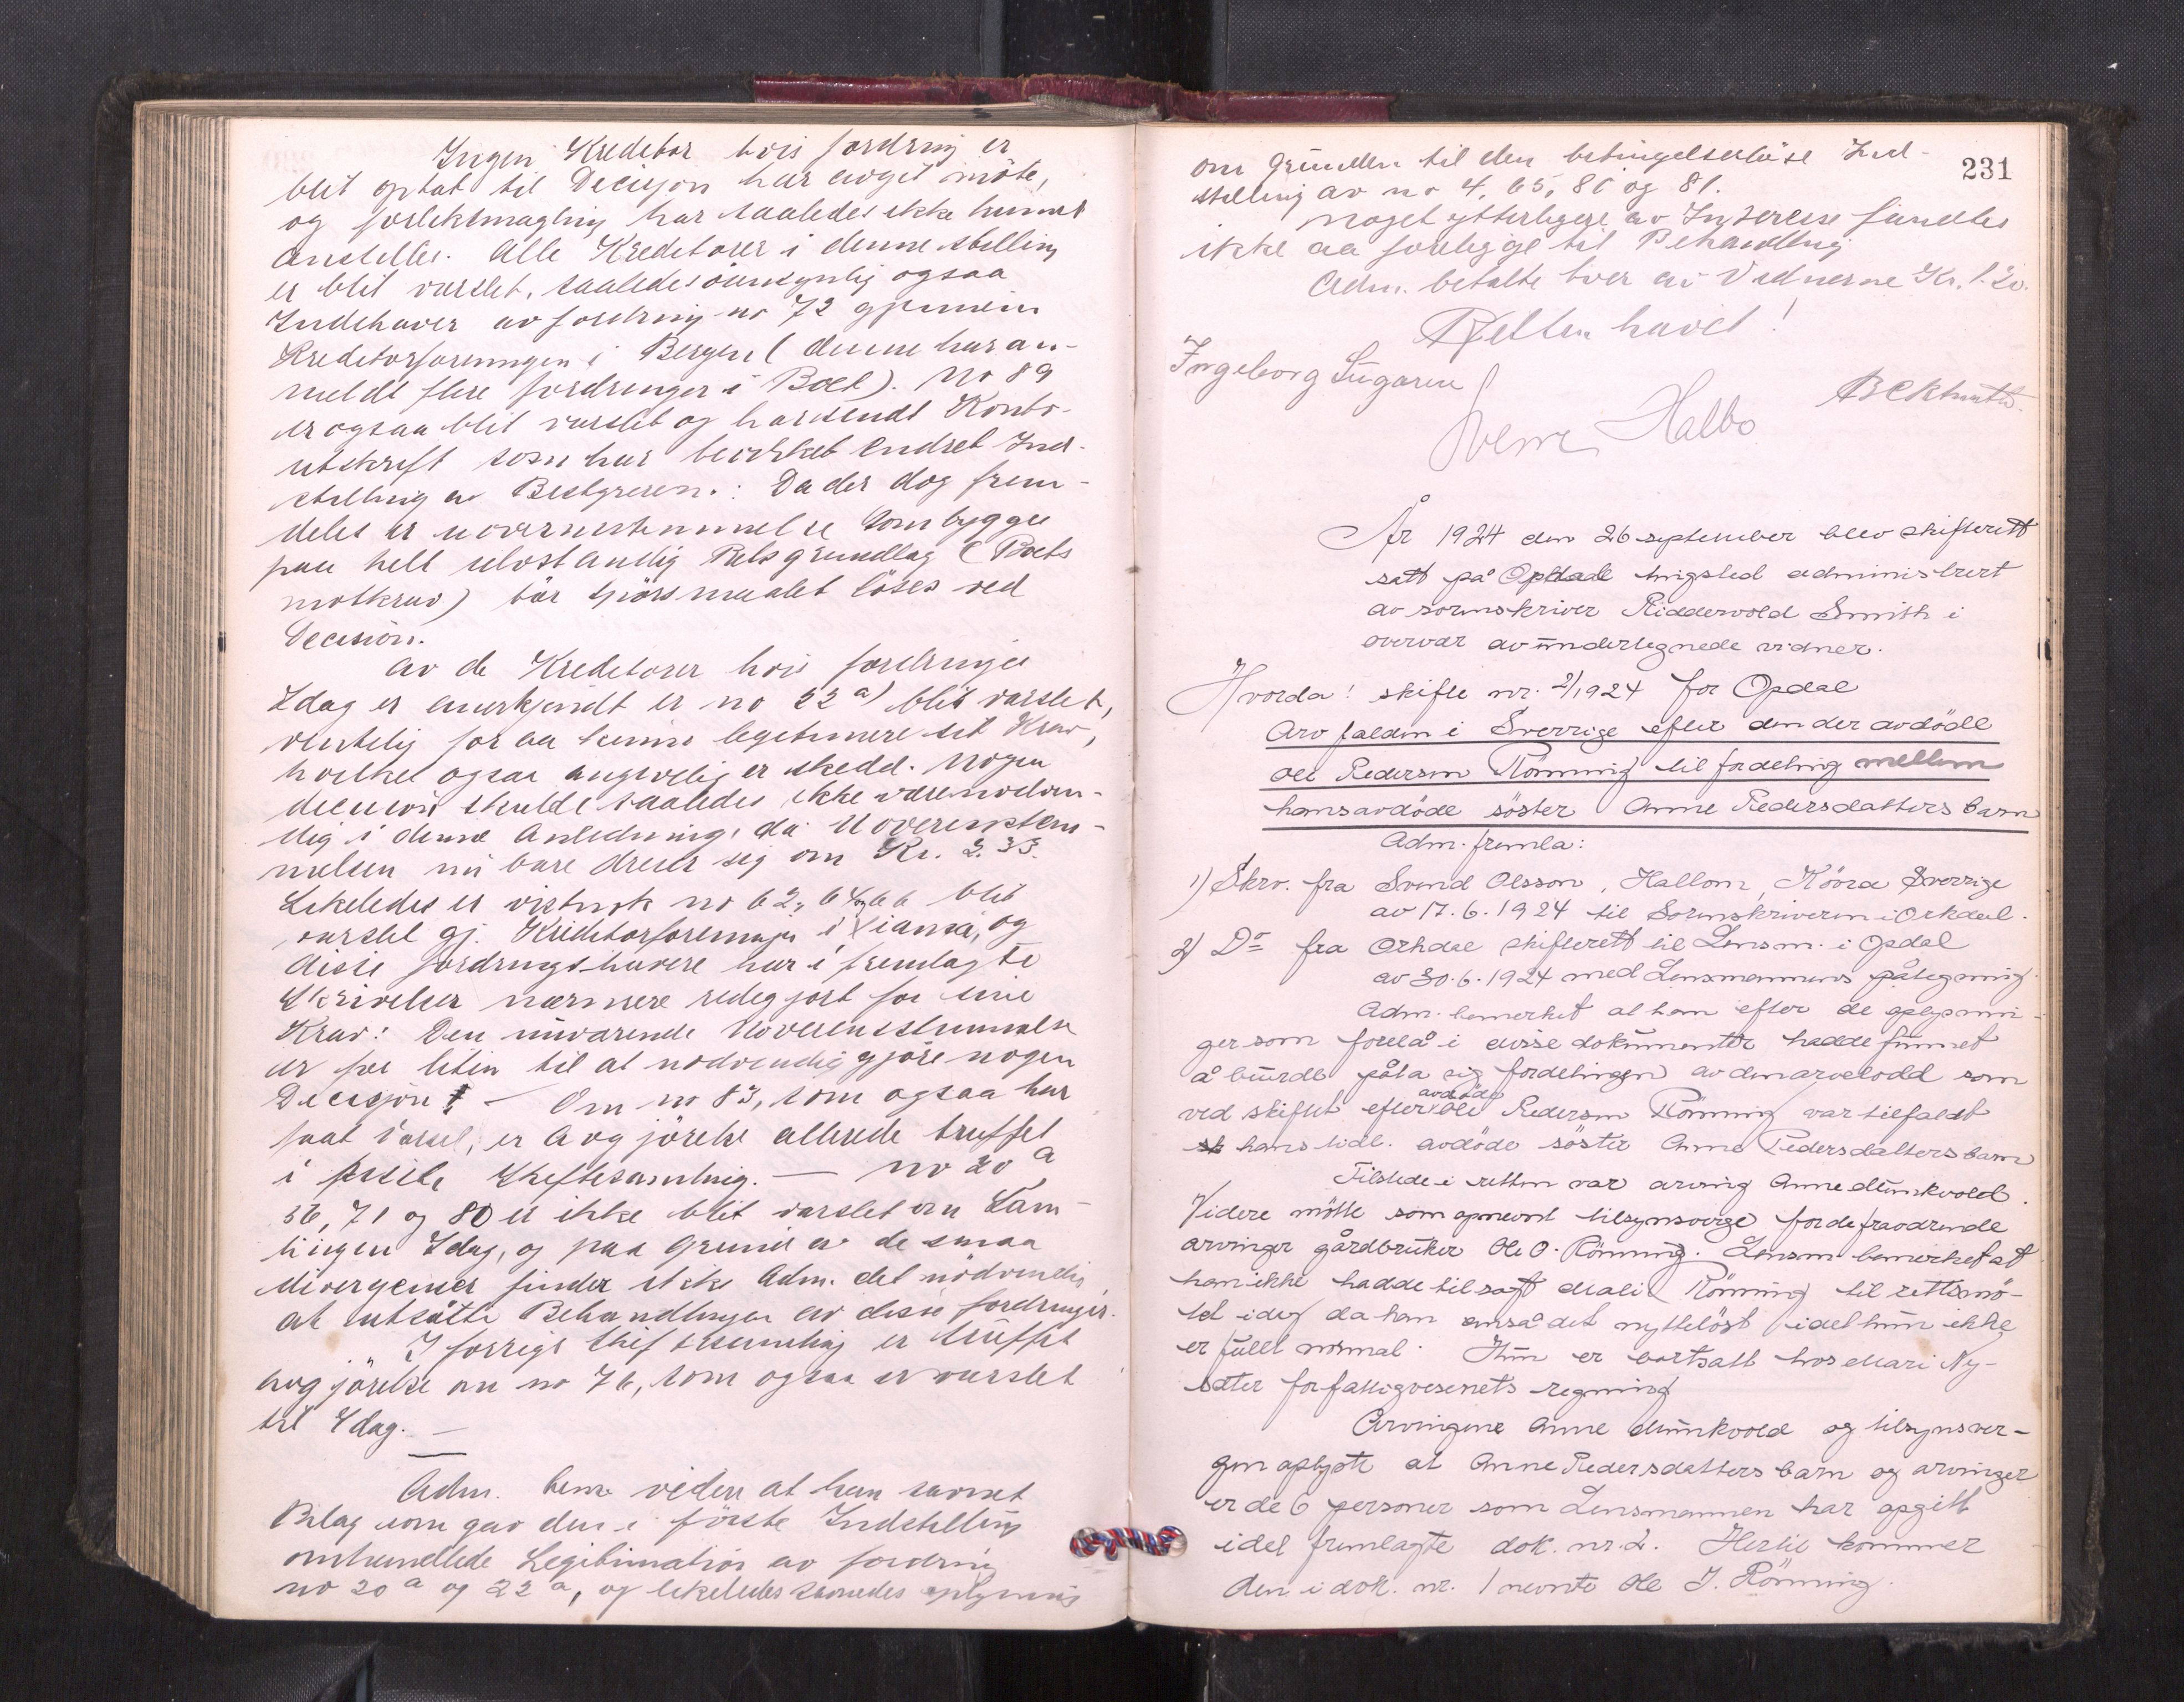 Ingen Kreditor hvis fordring er
blit optat til Decisjon har avgit møte,
og forliksmægling har saaledes ikke kunnet
anstilles. Alle Kreditorer i denne stilling
er blit varslet, saaledes øiensynlig ogsaa
Indehaver av fordring no 72 gjennem
Kreditorforeningen i Bergen (denne har an-
meldt flere fordringer i Boet). No 89
er ogsaa blit varslet og har sendt Konto-
utskrift som har bevirket Endret Ind-
stilling av Bestyreren.: Da der dog frem-
deles er uoverensstemmelse som bygges
paa helt selvstændig Retsgrundlag (Boets
motkrav) bør spørsmaalet løses ved
Decision.
Av de Kreditorer hvis fordringer
Idag er anerkjendt er no 22 a) blit varslet,
væsentlig for aa kunne legitimere sit Krav,
hvilket ogsaa er skedd. Nogen
decision skulde saaledes ikke være nødven-
dig i denne Anledning, da Uoverensstem-
melsen nu bare dreier sig om Kr. 2.33.
Likeledes er vistnok no 62, 64 og 66 blit
varslet gj. Kreditorforeningen i Kiania, og
disse fordringshavere har i fremlagte
Skrivelser nærmere redegjort for sine
Krav: Den nuværende Uoverensstemmelse
er for liten til at nødvendiggjøre nogen
Decisjon. — Om no 83, som ogsaa har
faat Varsel, er Avgjørelse allerede truffet
i Skiftesamling. — No 20 a
56, 71 og 80 er ikke blit varslet om Sam-
lingen Idag, og paa Grund av de smaa
divergenser finder ikke Adm. det nødvendig
at utsætte Behandlingen av disse fordringer.
I forrige Skiftesamling er truffet
avgjørelse om no 76, som ogsaa er varslet
til Idag. —
Adm. bem. videre at han savnet
Bilag som gav den i første Indstilling
omhandlede Legitimation av fordring
no 20 a og 22 a, og likeledes savnedes oplysning
231
om Grunden til den betingelsesløse Ind-
stilling av no 4, 65, 80 og 81.
Noget ytterligere av Interesse fandtes
ikke aa foreligge til Behandling
Adm. betalte hver av Vidnerne Kr. 1.20.
Retten hævet!
Ingeborg
Halbo
År 1924 den 26 september blev skifterett
satt på Opdal tingsted administrert
av sorenskriver Riddervold Smith i
overvær av undertegnede vidner.
Hvorda! skifte nr. 2/1924 for Opdal
Arv falden i Sverrige efter den der avdöde
Ole Pedersen Rönning til fordeling mellem
hans avdöde söster Anne Pedersdatters barn
Adm. fremla:
1) Skrv. fra Svend Olsson, Hallom, Hövra Sverrige
av 17.6.1924 til Sorenskriveren i Orkdal.
2) Do fra Orkdal skifterett til Lensm. i Opdal
av 30.6.1924 med Lensmannens påtegning.
Adm. bemerket at han efter de oplysnin-
ger som forelå i disse dokumenter hadde funnet
å burde påta sig fordelingen av den arvelodd som
ved skiftet efter avdöde Ole Pedersen Rönning var tilfaldt
hans tidl. avdöde söster Anne Pedersdatters barn
Tilstede i retten var arving Anne Munkvold.
Videre mötte som opnevnt tilsynsverge for de fraværende
arvinger gårdbruker Ole O. Rönning. Lensm. bemerket at
han ikke hadde tilsagt Mali Rönning til rettsmö-
tet idag da han anså det nyttelöst idet hun ikke
er fullt normal. Hun er bortsatt hos Mari Ny-
sæter for fattigvesenets regning
Arvingene Anne Munkvold og tilsynsver-
gen oplyste at Anne Pedersdatters barn og arvinger
er de 6 personer som Lensmannen har opgitt
i det fremlagte dok. nr. 2. Hertil kommer
den i dok. nr. 1 nevnte Ole J. Rönning.